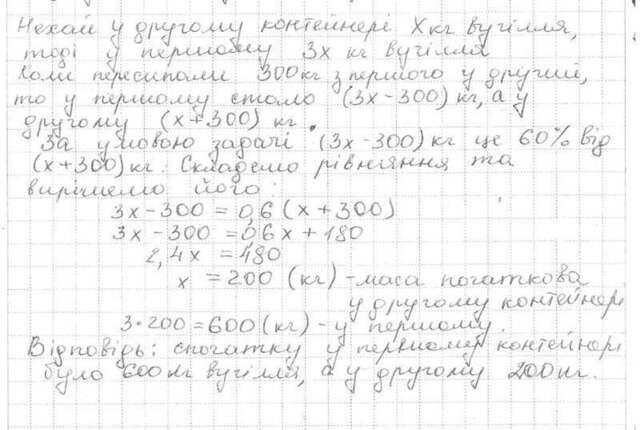 Нехай у другому контейнері X кг вугілля,
тоді у першому 3x кг вугілля
Коли пересипали 300 кг з першого у другий,
то у першому стало (3x-300) кг, а у
другому (x+300) кг.
За умовою задачі (3x-300) кг це 60% від
(x+300) кг. Складемо рівняння та
вирішемо його:
3x-300 = 0,6 (x+300)
3x-300 = 0,6x + 180
2,4x = 480
x = 200 (кг) - маса початкова
у другому контейнері
3·200 = 600 (кг) - у першому.
Відповідь: спочатку у першому контейнері
було 600 кг вугілля, а у другому 200 кг.